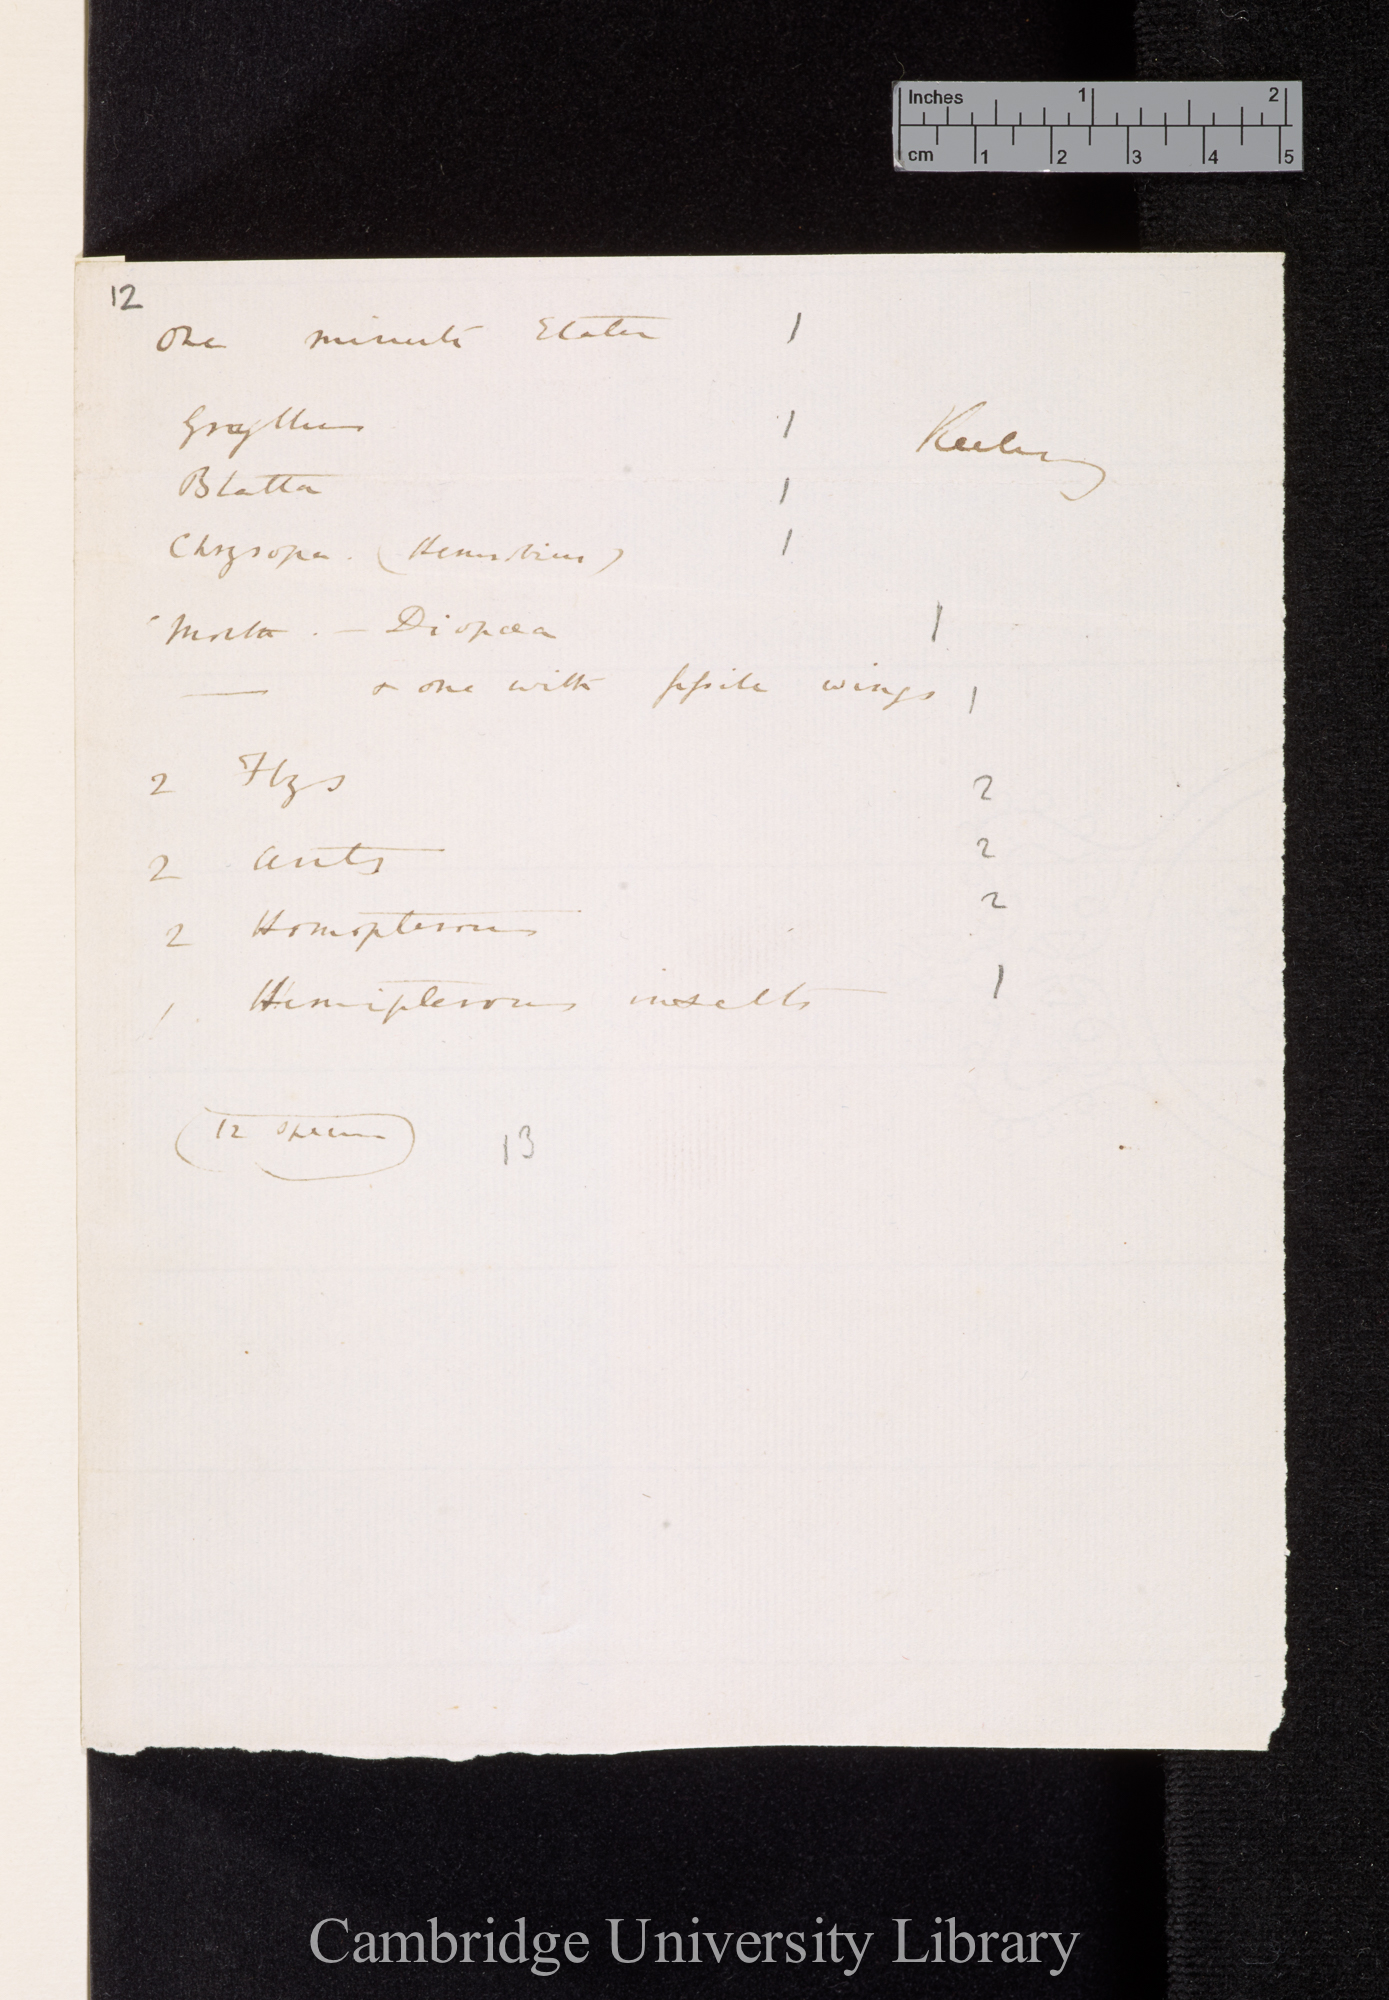 Inches 1 2
cm 1 2 3 4 5
12
One minute Elater 1
Gryllus 1 Keeling
Blatta 1
Chrysopa. (Hemerobius) 1
Moth. — Diopaea 1
— & one with fissile wings 1
2 Flys 2
2 ants 2
2 Homopterous 2
1 Hemipterous insects 1
12 species 13
Cambridge University Library